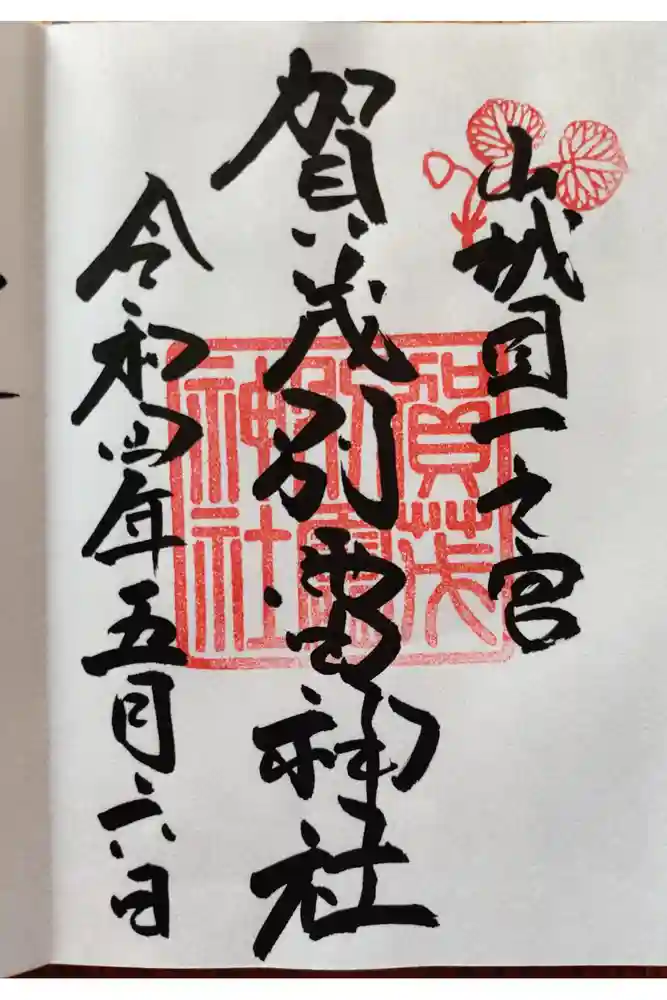 山城国一之宮
賀茂別雷神社
賀茂
別雷
神社
令和四年五月六日